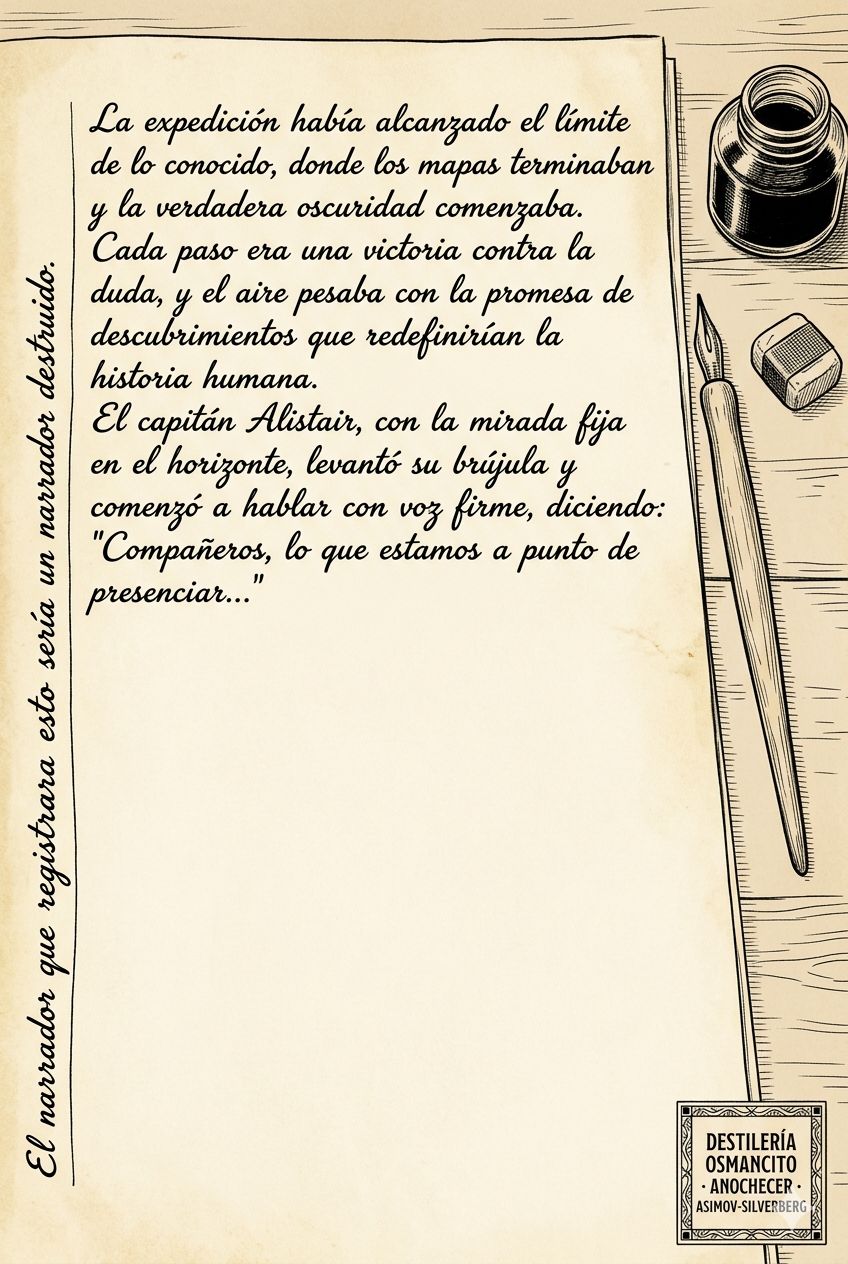 La expedición había alcanzado el límite
de lo conocido, donde los mapas terminaban
y la verdadera oscuridad comenzaba.
Cada paso era una victoria contra la
duda, y el aire pesaba con la promesa de
descubrimientos que redefinirían la
historia humana.
El capitán Alistair, con la mirada fija
en el horizonte, levantó su brújula y
comenzó a hablar con voz firme, diciendo:
"Compañeros, lo que estamos a punto de
presenciar..."
El narrador que registrara esto sería un narrador destruido.
DESTILERÍA
OSMANCITO
· ANOCHECER ·
ASIMOV-SILVERBERG